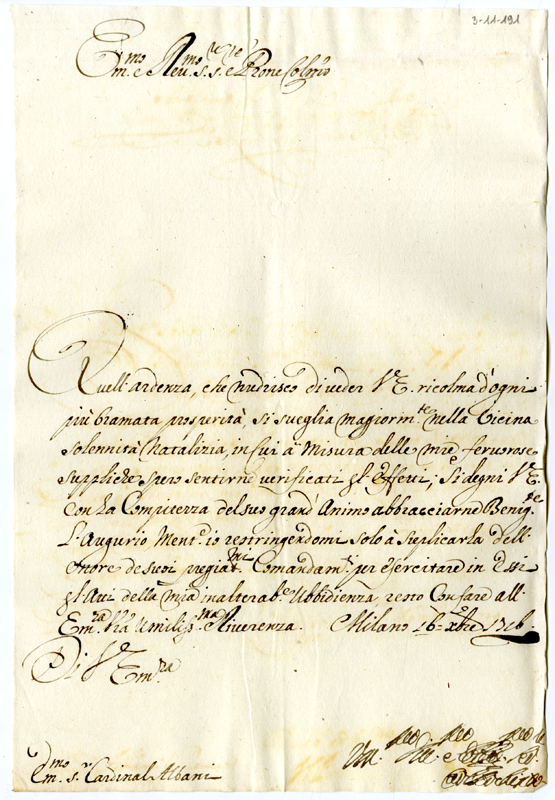 3-11-191
Em.mo e Rev.mo S.re S.re e Prone Colmo
Quell'ardenza, che nudrisco di veder V.E. ricolma d'ogni
più bramata prosperità, si sveglia magiorm.te nella Vicina
solennità Natalizia, in cui à Misura delle mie fervorose
suppliche spero sentirne verificati gl'Effetti; Si degni V.E.
con la Compitezza del suo grand'Animo abbracciarne Benig.te
L'Augurio Ment.o io restringendomi solo à suplicarla dell'
onore de suoi pregiat.mi Comandam.ti per esercitare in Essi
gl'Atti della mia inalterab.e Ubbidienza resto Con fare all'
Em.za V.ra Umiliss.ma Riverenza. Milano 16 Xbre
Di V.E.
Em.za
Em.mo S.r Cardinal Albani